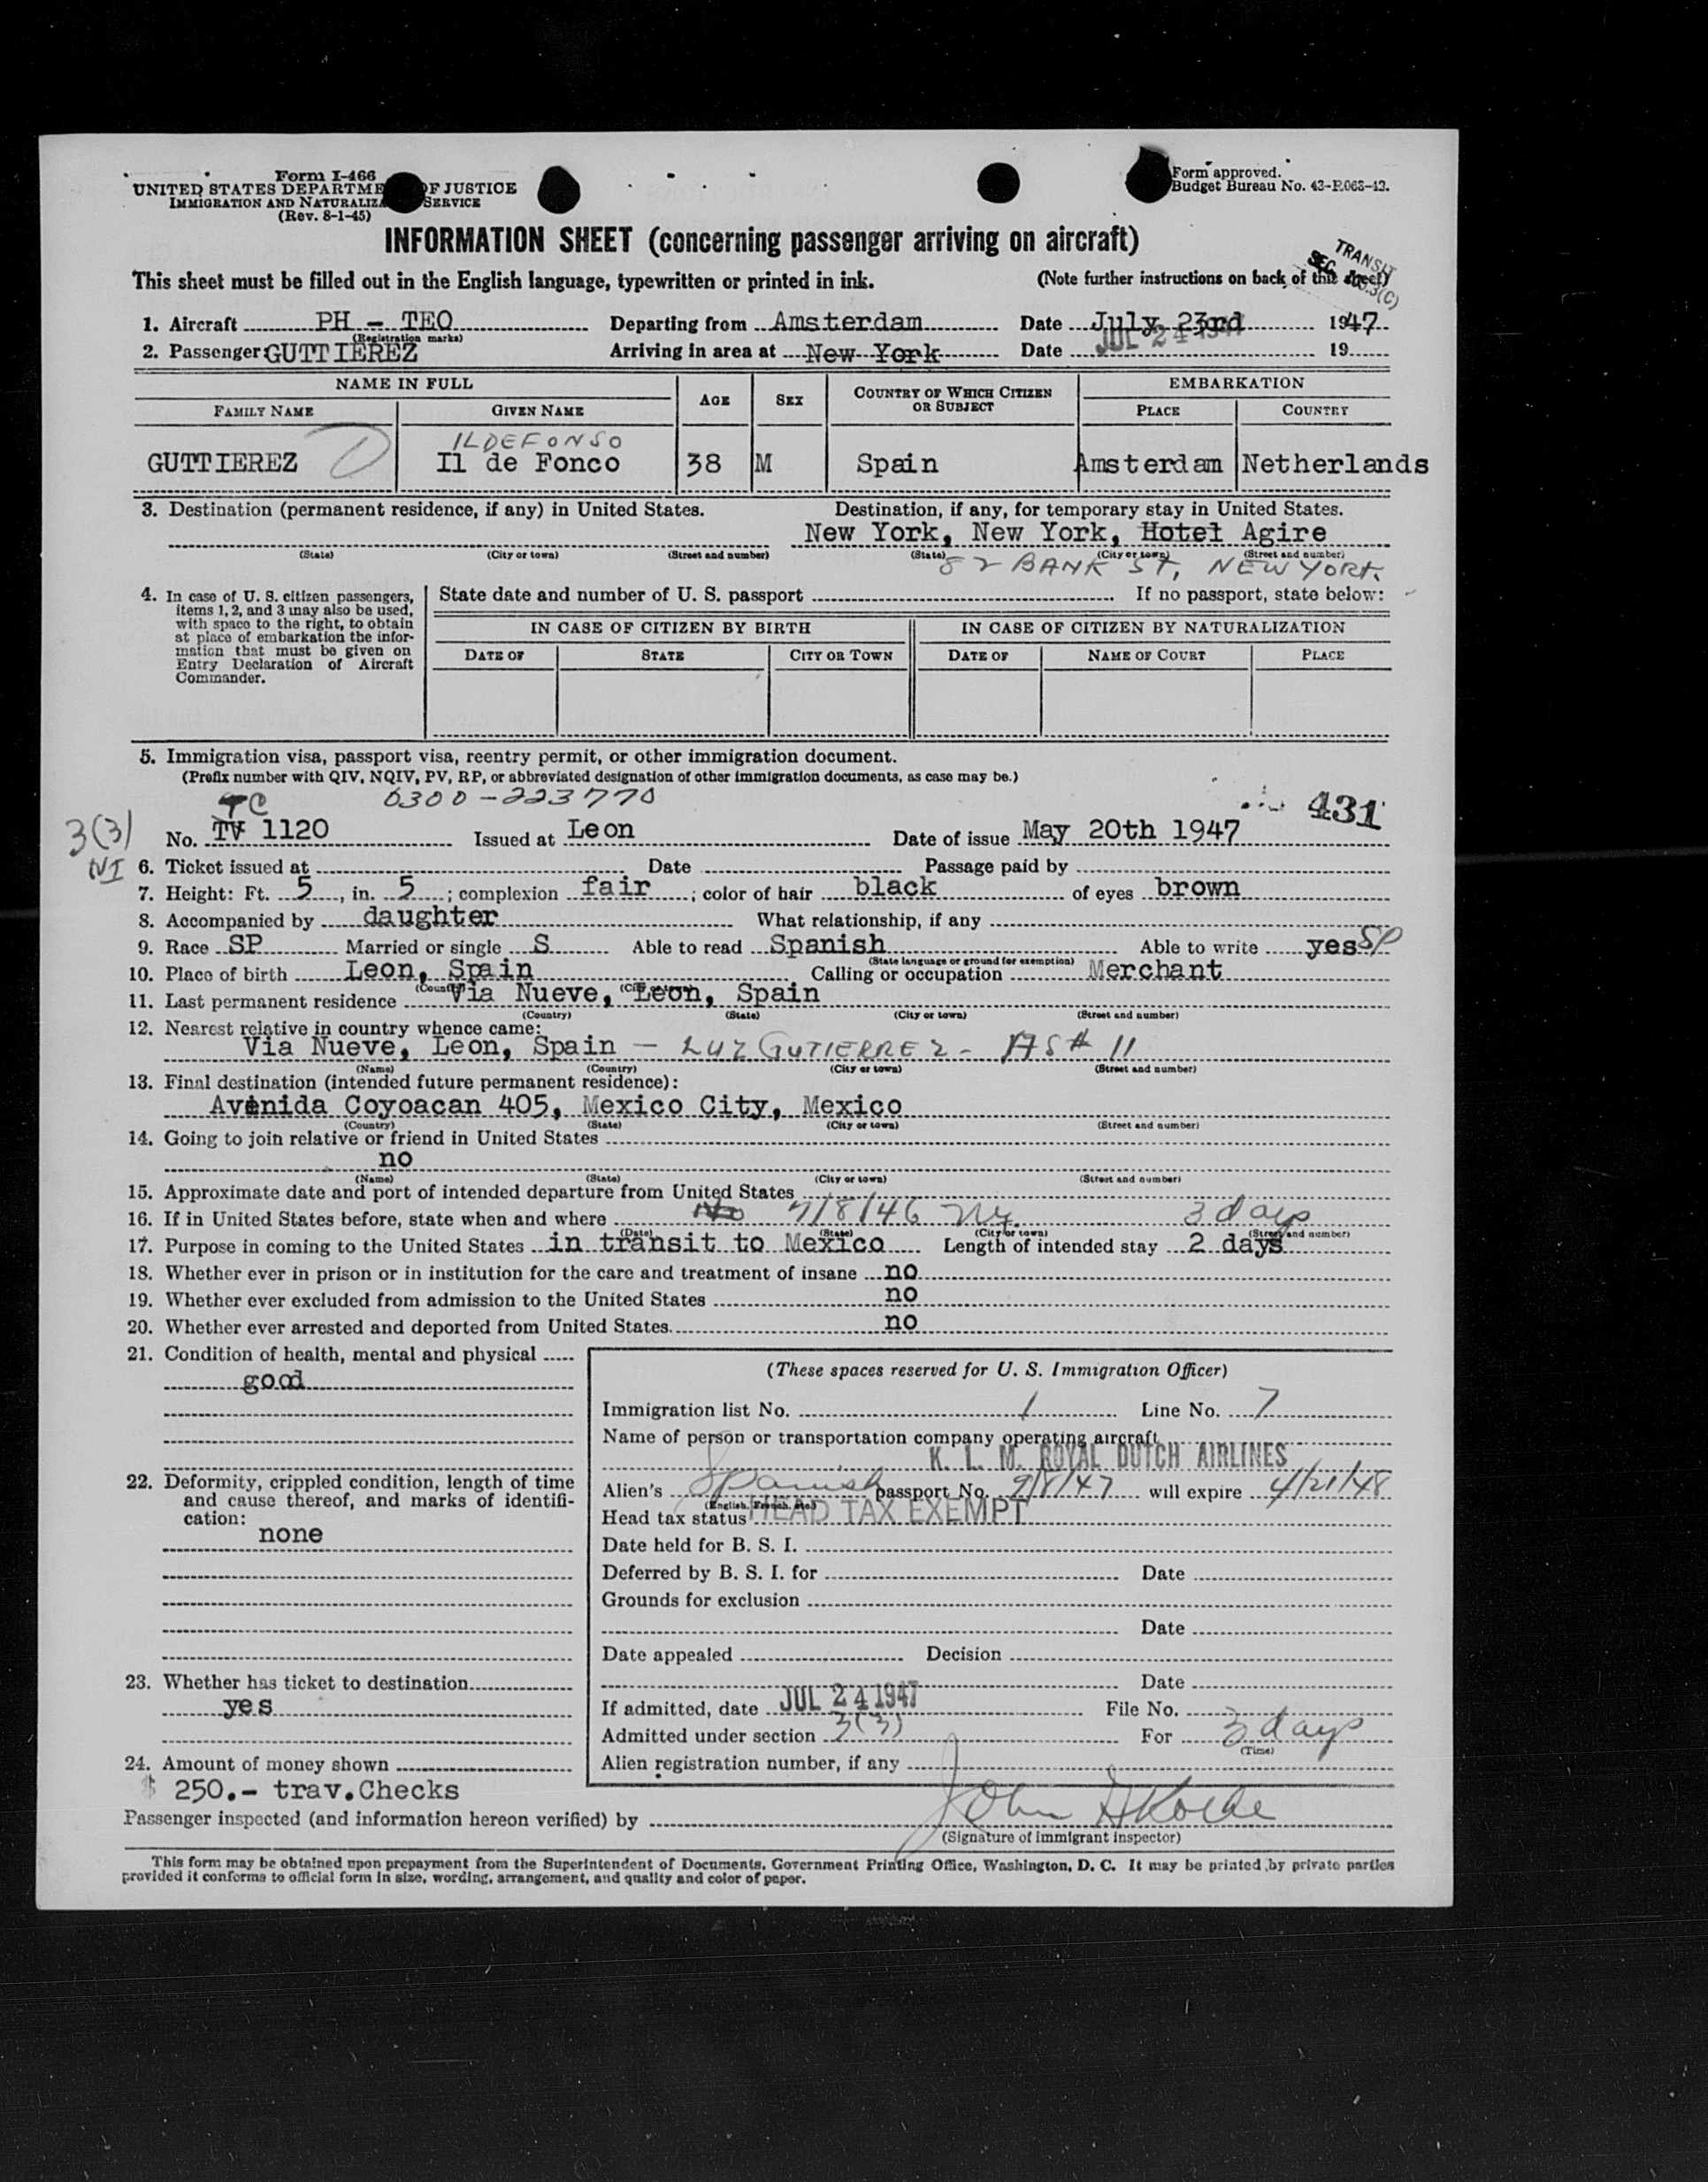 Form I-466
UNITED STATES DEPARTME OF JUSTICE
IMMIGRATION AND NATURALIZA SERVICE
(Rev. 8-1-45)
Form approved.
Budget Bureau No. 43-R063-43.
INFORMATION SHEET (concerning passenger arriving on aircraft)
TRANSIT
This sheet must be filled out in the English language, typewritten or printed in ink. (Note further instructions on back of this sheet)
SEC. 3(C)
1. Aircraft PH - TEO Departing from Amsterdam Date July 23rd 1947
(Registration marks)
JUL 24 1947
2. Passenger GUTTIEREZ Arriving in area at New York Date 19
NAME IN FULL AGE SEX COUNTRY OF WHICH CITIZEN OR SUBJECT EMBARKATION
FAMILY NAME GIVEN NAME PLACE COUNTRY
ILDEFONSO
GUTTIEREZ Il de Fonco 38 M Spain Amsterdam Netherlands
3. Destination (permanent residence, if any) in United States. Destination, if any, for temporary stay in United States.
New York, New York, Hotel Agire
(State) (City or town) (Street and number) (State) (City or town) (Street and number)
82 BANK ST, NEW YORK.
4. In case of U. S. citizen passengers, items 1, 2, and 3 may also be used, with space to the right, to obtain at place of embarkation the information that must be given on Entry Declaration of Aircraft Commander.
State date and number of U. S. passport If no passport, state below:
IN CASE OF CITIZEN BY BIRTH IN CASE OF CITIZEN BY NATURALIZATION
DATE OF STATE CITY OR TOWN DATE OF NAME OF COURT PLACE
5. Immigration visa, passport visa, reentry permit, or other immigration document.
(Prefix number with QIV, NQIV, PV, RP, or abbreviated designation of other immigration documents, as case may be.)
TC 0300-223770
431
3(3) No. TV 1120 Issued at Leon Date of issue May 20th 1947
NI 6. Ticket issued at Date Passage paid by
7. Height: Ft. 5, in. 5; complexion fair; color of hair black of eyes brown
8. Accompanied by daughter What relationship, if any
9. Race SP Married or single S Able to read Spanish Able to write yes SP
(State language or ground for exemption)
10. Place of birth Leon, Spain Calling or occupation Merchant
(Country) (City or town)
11. Last permanent residence Via Nueve, Leon, Spain
(Country) (State) (City or town) (Street and number)
12. Nearest relative in country whence came:
Via Nueve, Leon, Spain — LUZ GUTIERREZ - AS # 11
(Name) (Country) (City or town) (Street and number)
13. Final destination (intended future permanent residence):
Avenida Coyoacan 405, Mexico City, Mexico
(Country) (State) (City or town) (Street and number)
14. Going to join relative or friend in United States
no
(Name) (State) (City or town) (Street and number)
15. Approximate date and port of intended departure from United States
16. If in United States before, state when and where No 7/8/46 NY. 3 days
(Date) (State) (City or town) (Street and number)
17. Purpose in coming to the United States in transit to Mexico Length of intended stay 2 days
18. Whether ever in prison or in institution for the care and treatment of insane no
19. Whether ever excluded from admission to the United States no
20. Whether ever arrested and deported from United States. no
21. Condition of health, mental and physical
good
22. Deformity, crippled condition, length of time and cause thereof, and marks of identification:
none
23. Whether has ticket to destination
yes
24. Amount of money shown
$ 250.- trav.Checks
(These spaces reserved for U. S. Immigration Officer)
Immigration list No. 1 Line No. 7
Name of person or transportation company operating aircraft
K. L. M. ROYAL DUTCH AIRLINES
Alien's Spanish passport No. 9/8/47 will expire 4/21/48
(English, French, etc.)
Head tax status HEAD TAX EXEMPT
Date held for B. S. I.
Deferred by B. S. I. for Date
Grounds for exclusion
Date
Date appealed Decision
Date
If admitted, date JUL 24 1947 File No.
Admitted under section 3(3) For 3 days
(Time)
Alien registration number, if any
Passenger inspected (and information hereon verified) by John
(Signature of immigrant inspector)
This form may be obtained upon prepayment from the Superintendent of Documents, Government Printing Office, Washington, D. C. It may be printed by private parties
provided it conforms to official form in size, wording, arrangement, and quality and color of paper.